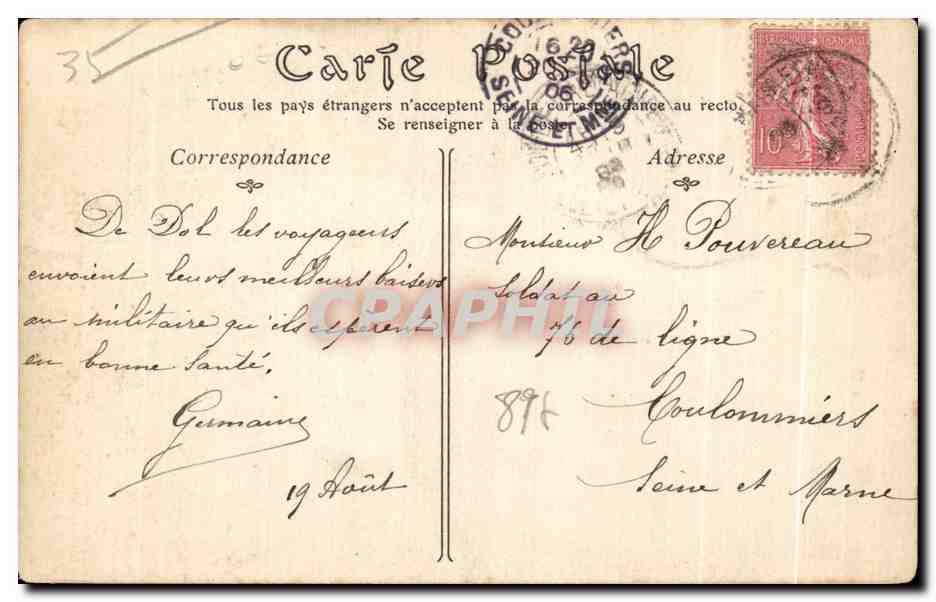 35
Carte Postale
Tous les pays étrangers n'acceptent pas la correspondance au recto
Se renseigner à la poste
Correspondance
Adresse
De Dol les voyageurs
envoient leurs meilleurs baisers
au militaire qu'ils espèrent
en bonne santé.
Germaine
19 Août
Monsieur H Pouvereau
Soldat au
76 de ligne
Coulommiers
Seine et Marne
SEINE ET MNE
06
10
CPAPHIL